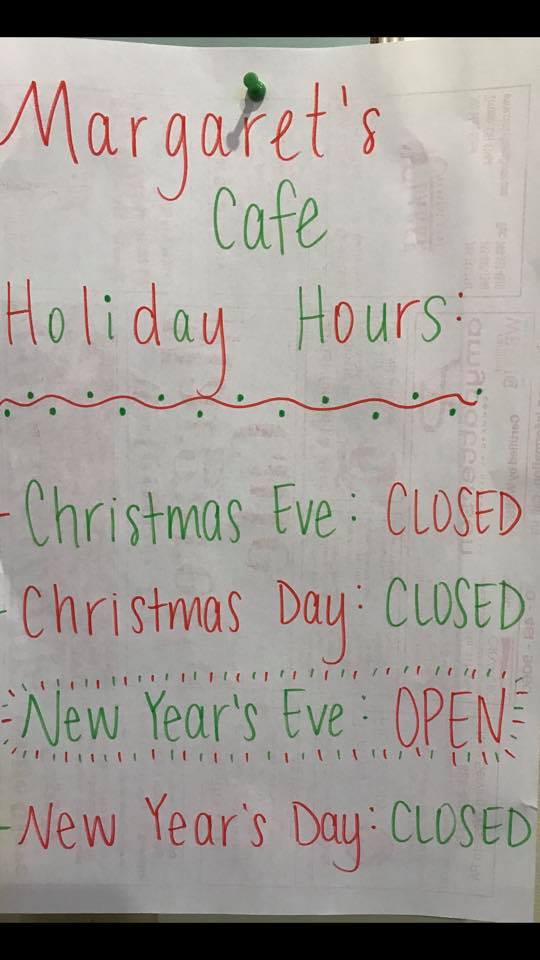 Margaret's
Cafe
Holiday Hours:
- Christmas Eve: CLOSED
- Christmas Day: CLOSED
New Year's Eve: OPEN
- New Year's Day: CLOSED